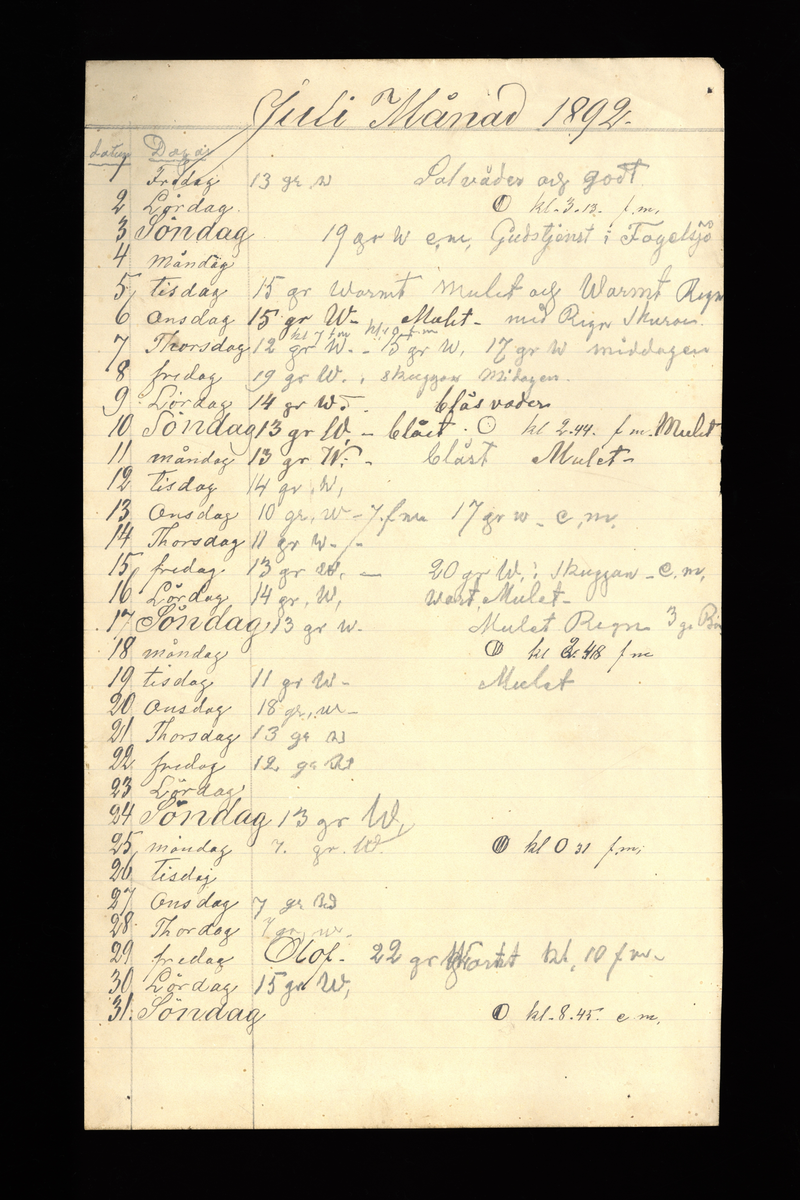 Juli Månad 1892.
datum Dagar
1 Fredag 13 gr w Solväder och godt
2 Lördag. kl. 3.13. f.m.
3 Söndag 19 gr W e.m. Gudstjenst i Fogelsjö
4 måndag
5 tisdag 15 gr Warmt Mulet och Warmt Regn
6 Onsdag 15 gr W- Mulet- med Regn Skurar.
kl 7 f.m kl 10 f.m
7 Thorsdag 12 gr W. - 15 gr W, 17 gr W middagen
8 fredag 19 gr W. i skuggan Midagen.
9 Lördag 14 gr W. - blåsväder
10 Söndag 13 gr W, - blåst. kl 2.44. f.m. Mulet
11 måndag 13 gr W. - blåst Mulet-
12 tisdag 14 gr, W,
13 Onsdag 10 gr, W - 7 fm 17 gr w - e.m.
14 Thorsdag 11 gr w. -
15 fredag 13 gr w. - 20 gr W, i Skuggan - e.m,
16 Lördag 14 gr, W, Mulet-
17 Söndag, 13 gr w. Mulet Regn 3 gr
18 måndag kl 2.48 f m
19 tisdag 11 gr W- Mulet
20 Onsdag 18 gr, w-
21 Thorsdag 13 gr w
22 fredag 12 gr W
23 Lördag
24 Söndag 13 gr W,
25 måndag 7. gr. W. kl 0 31 f.m,
26 tisdag
27 Onsdag 7 gr W
28 Thordag 7 gr, w-
29 fredag Olof- 22 gr Warmt kl, 10 f m-
30 Lördag 15 gr W,
31. Söndag kl. 8.45. e m,